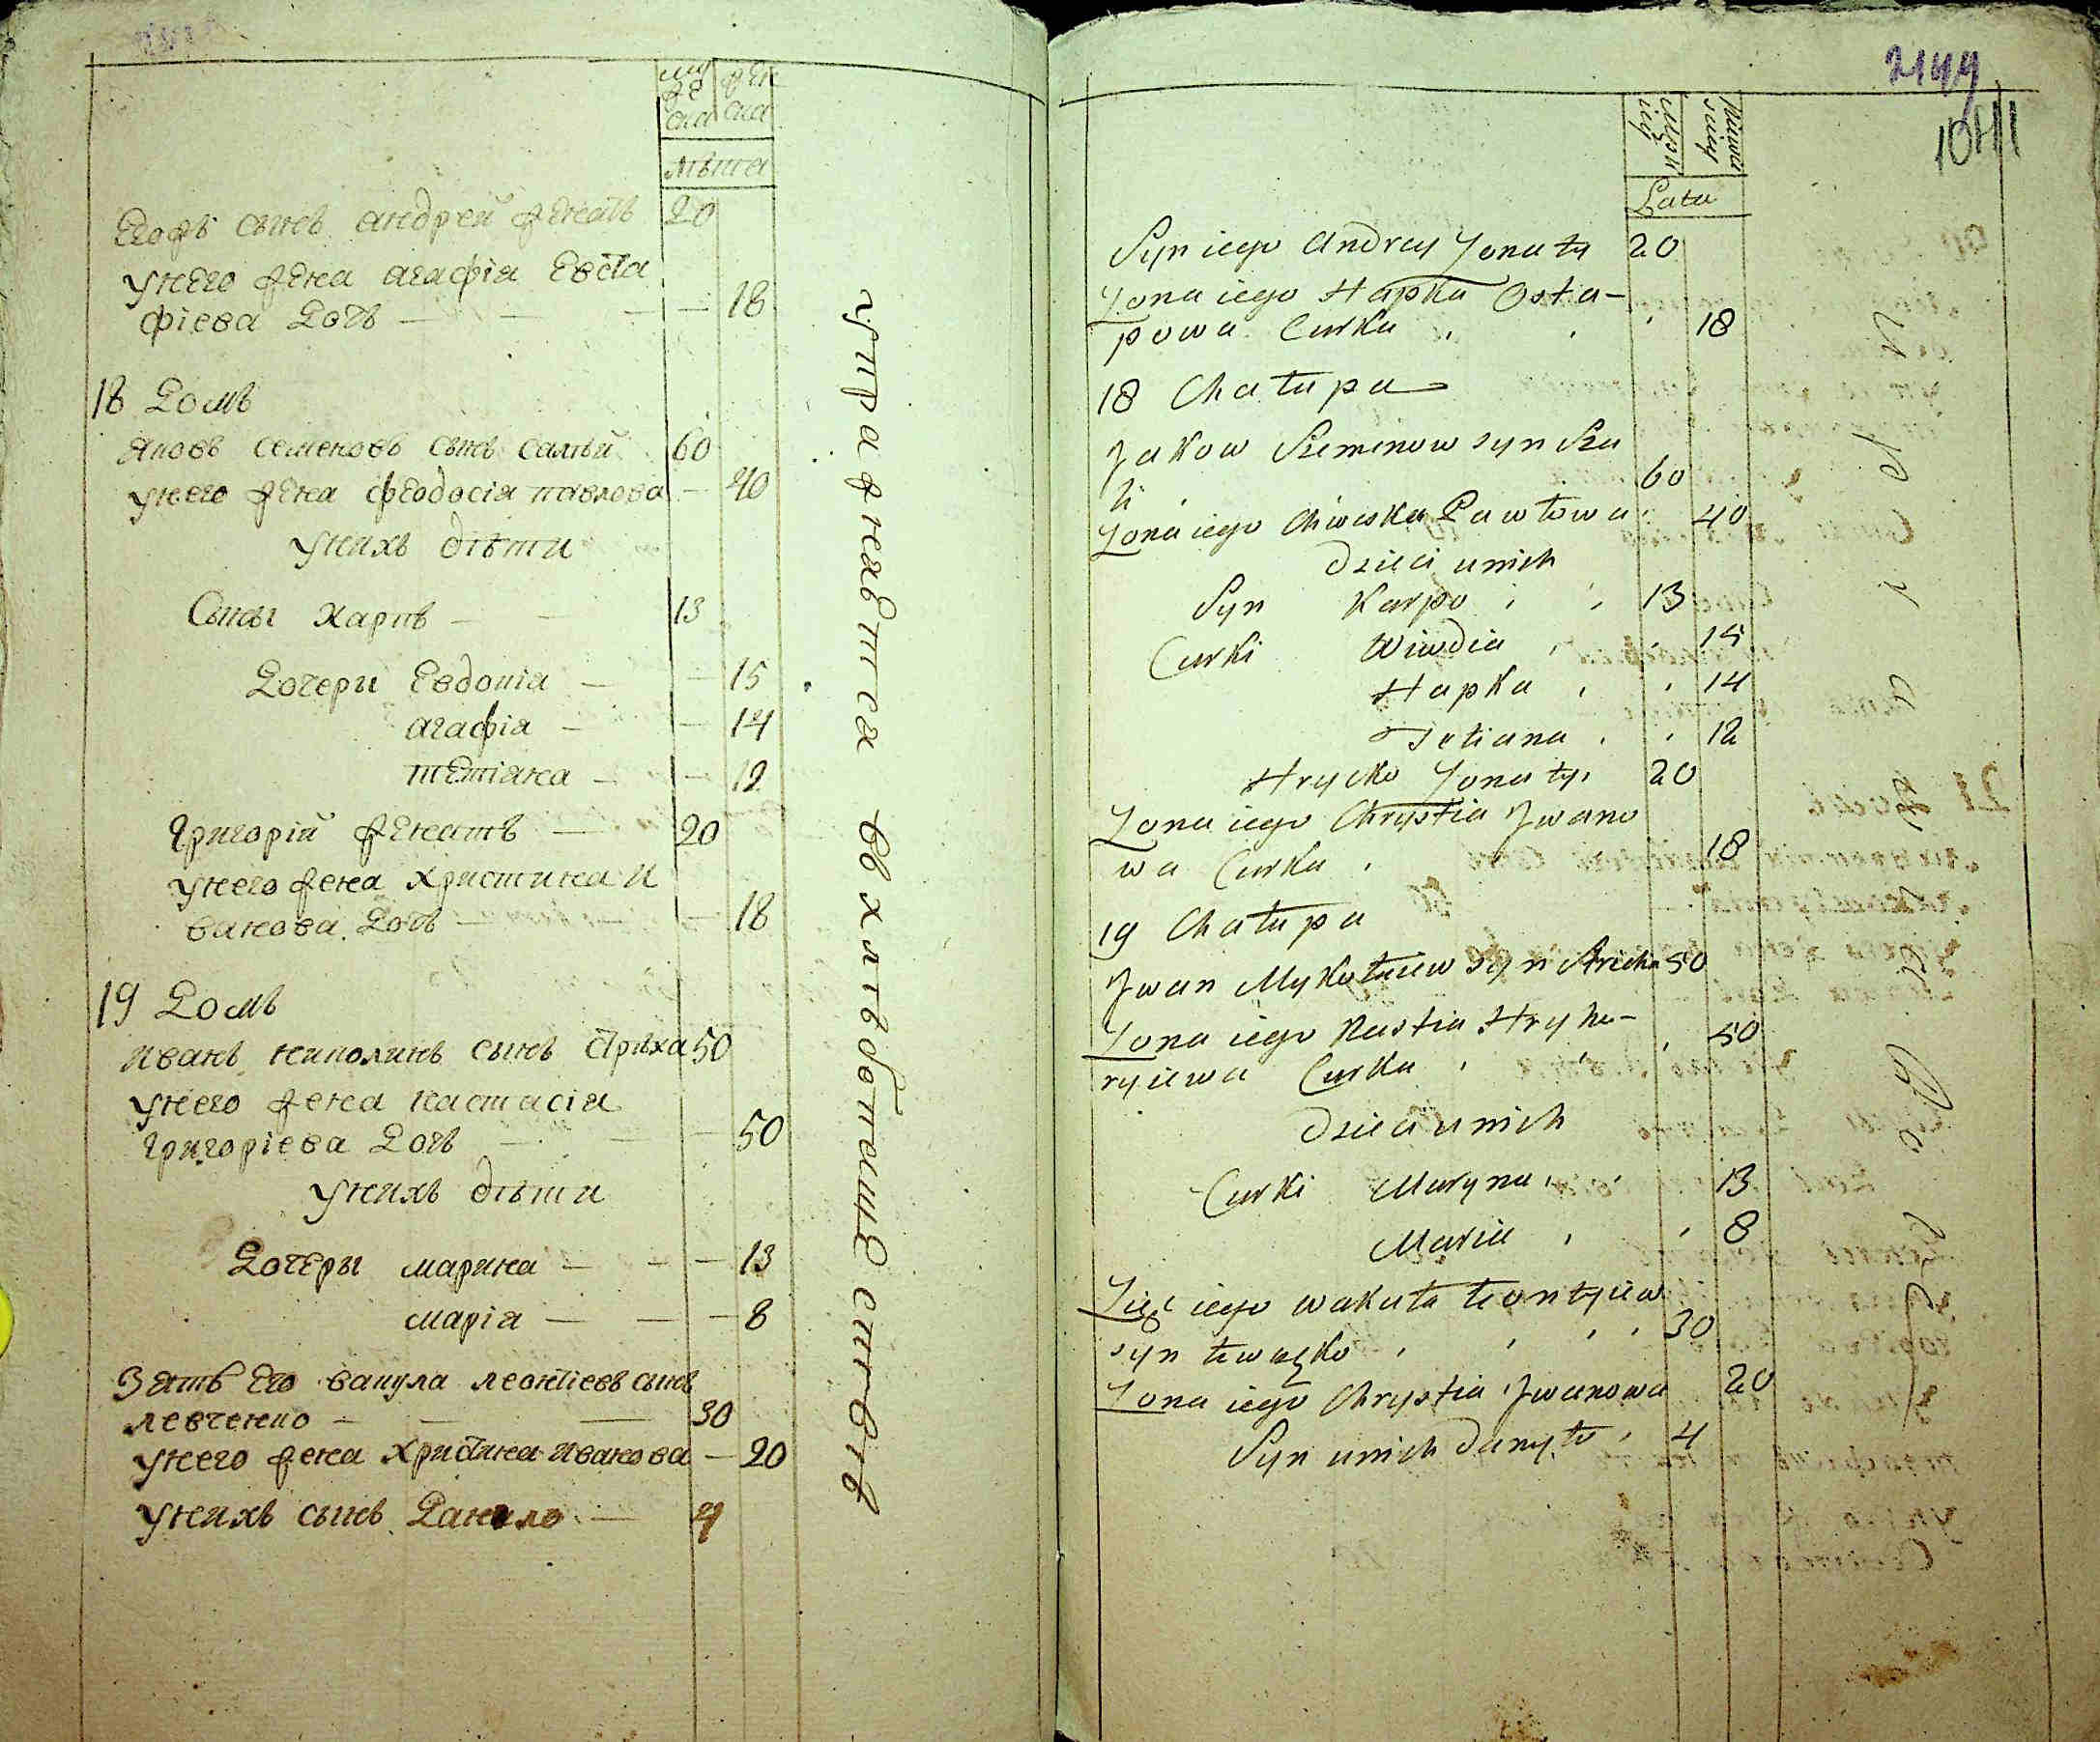 муже ска
жен ска
лѣта
Егожъ сынъ андрей женатъ 20
унего жена агафія Евста
фіева Дочь — — — — 18
18 Домъ
яковъ семеновъ сынъ 60
унего жена феодосія павлова — 40
унихъ дѣти
Сынъ карпъ — — 13
Дочери Евдокія — — 15
агафія — — 14
тетіана — — 12
Григорій женатъ — 20
унего жена христина и
ванова Дочь — — — 18
19 Домъ
Иванъ николинъ сынъ стрѣха 50
унего жена настасія
григоріева Дочь — — — 50
унихъ дѣти
Дочеры марина — — — 13
марія — — — 8
Зять Его вакула леонтіевъ сынъ
левченко — — — 30
унего жена христина иванова — 20
унихъ сынъ Данило — 4
упражнѣется въ хлѣбопашествѣ
2149
1041
Lata
Syn iego Andrey Żonaty 20
Żona iego Hapka Osta-
powa Curka 18
18 Chałupa
Jakow Siemenow syn 60
Żona iego Chiweska Pawłowa 40
Dzieci unich
Syn Karpo 13
Curki Wiwdia 15
Hapka 14
Tetiana 12
Hrycko Żonaty 20
Żona iego Chrystia Jwano
wa Curka 18
19 Chałupa
Jwan Mykołaiew syn Stricha 50
Żona iego Nastia Hryho-
ryiewa Curka 50
Dzieci unich
Curki Maryna 13
Maria 8
Zięć iego Wakuła Leontyiew
syn Lewczko 30
Żona iego Chrystia Jwanowa 20
Syn unich Danyło 4